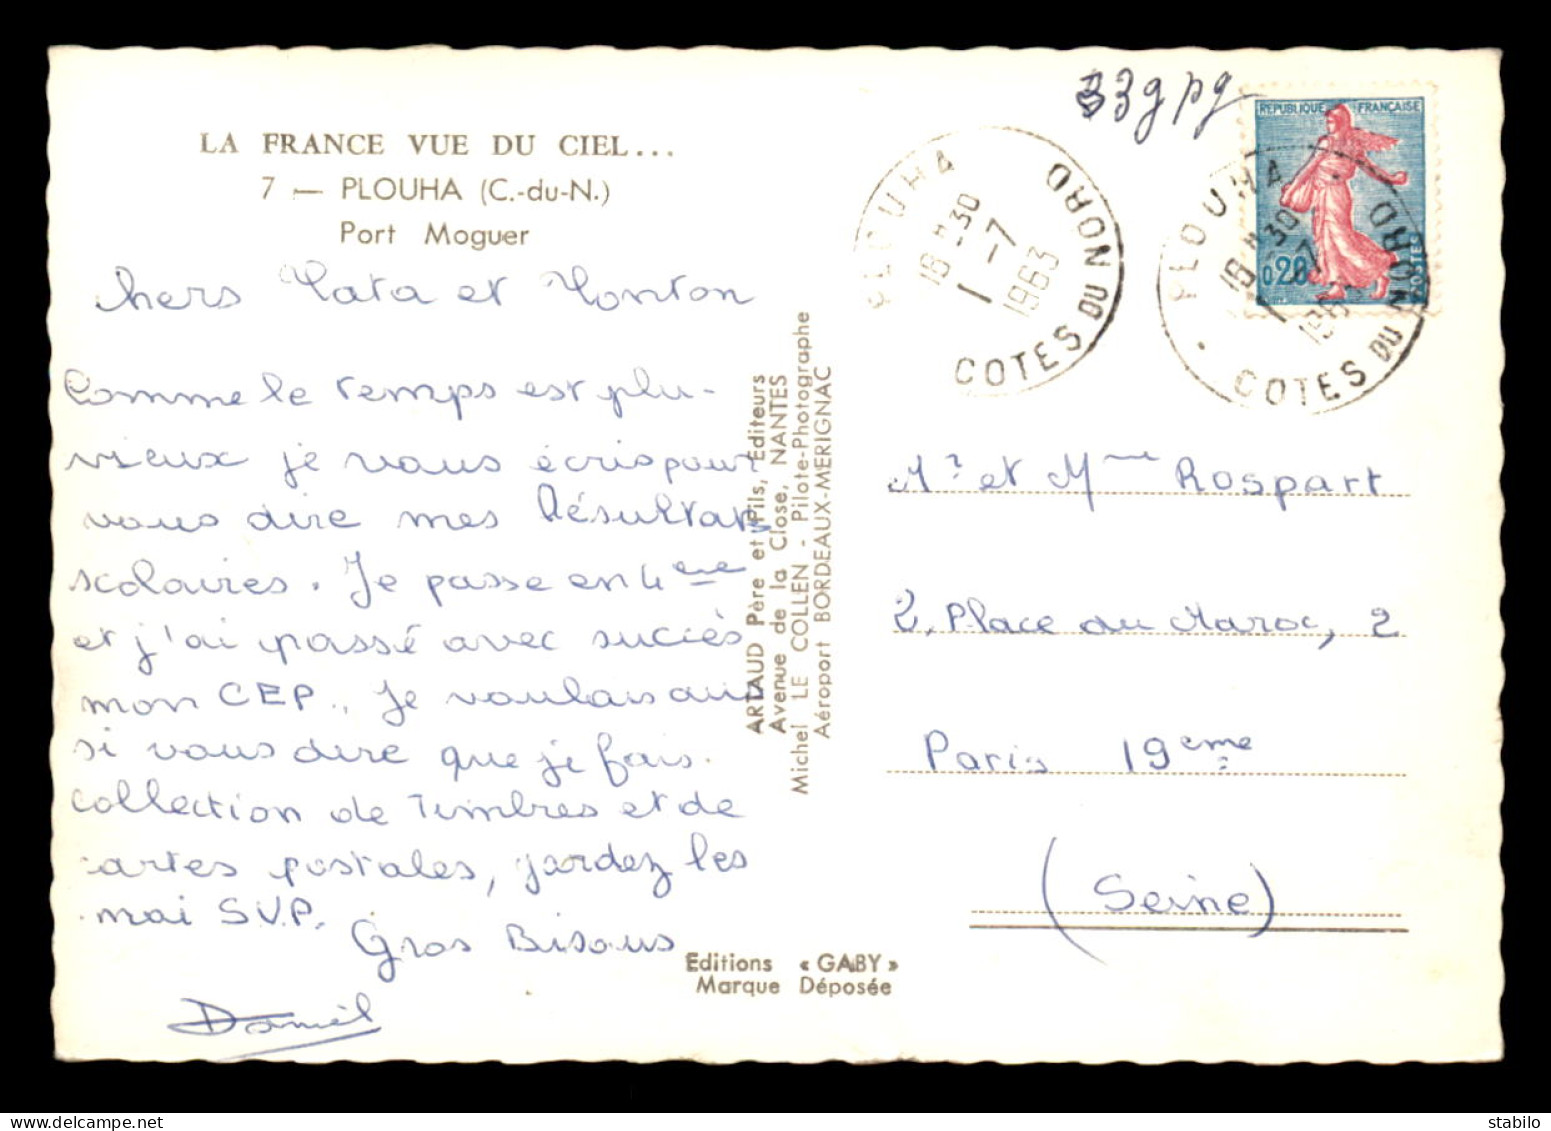 33gpg
REPUBLIQUE FRANÇAISE
0,20
POSTES
PLOUHA
18 H 30
1 -7
1963
COTES DU NORD
PLOUHA
18 H 30
1 -7
1963
COTES DU NORD
LA FRANCE VUE DU CIEL...
7 — PLOUHA (C.-du-N.)
Port Moguer
Chers Tata et Tonton
Comme le temps est plu-
vieux je vous écris pour
vous dire mes Résultats
scolaires. Je passe en 4eme
et j'ai passé avec succés
mon CEP.. Je voulais aus
si vous dire que je fais.
collection de Timbres et de
cartes postales, gardez les
moi S.V.P.
Gros Bisous
Daniel
ARTAUD Père et Fils, Editeurs
Avenue de la Close, NANTES
Michel LE COLLEN - Pilote-Photographe
Aéroport BORDEAUX-MERIGNAC
Editions « GABY »
Marque Déposée
Mr et Mme Rospart
2, Place du Maroc, 2
Paris 19eme
(Seine)